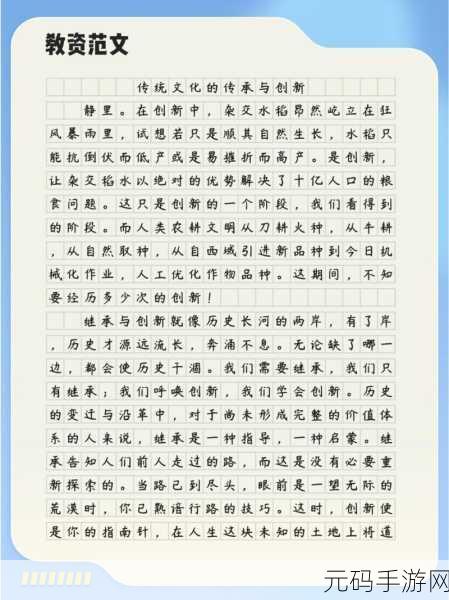 教资范文
传统文化的传承与创新
静里。在创新中，杂交水稻昂然屹立在狂
风暴雨里，试想若只是顺其自然生长，水稻只
能抗倒伏而低产或是易摧折而高产。是创新，
让杂交稻水以绝对的优势解决了十亿人口的粮
食问题。这只是创新的一个阶段，我们看得到
的阶段。而人类农耕文明从刀耕火种，从牛耕
，从自然取种，从自西域引进新品种到今日机
械化作业，人工优化作物品种。这期间，不知
要经历多少次的创新！
继承与创新就像历史长河的两岸，有了岸
，历史才源远流长，奔涌不息。无论缺了哪一
边，都会使历史干涸。我们需要继承，我们只
有继承；我们呼唤创新，我们学会创新。历史
的变迁与沿革中，对于尚未形成完整的价值体
系的人来说，继承是一种指导，一种启蒙。继
承告知人们前人走过的路，而这是没有必要重
新探索的。当路已到尽头，眼前是一望无际的
荒漠时，你已熟谙行路的技巧。这时，创新便
是你的指南针，在人生这块未知的土地上将道
元码手游网